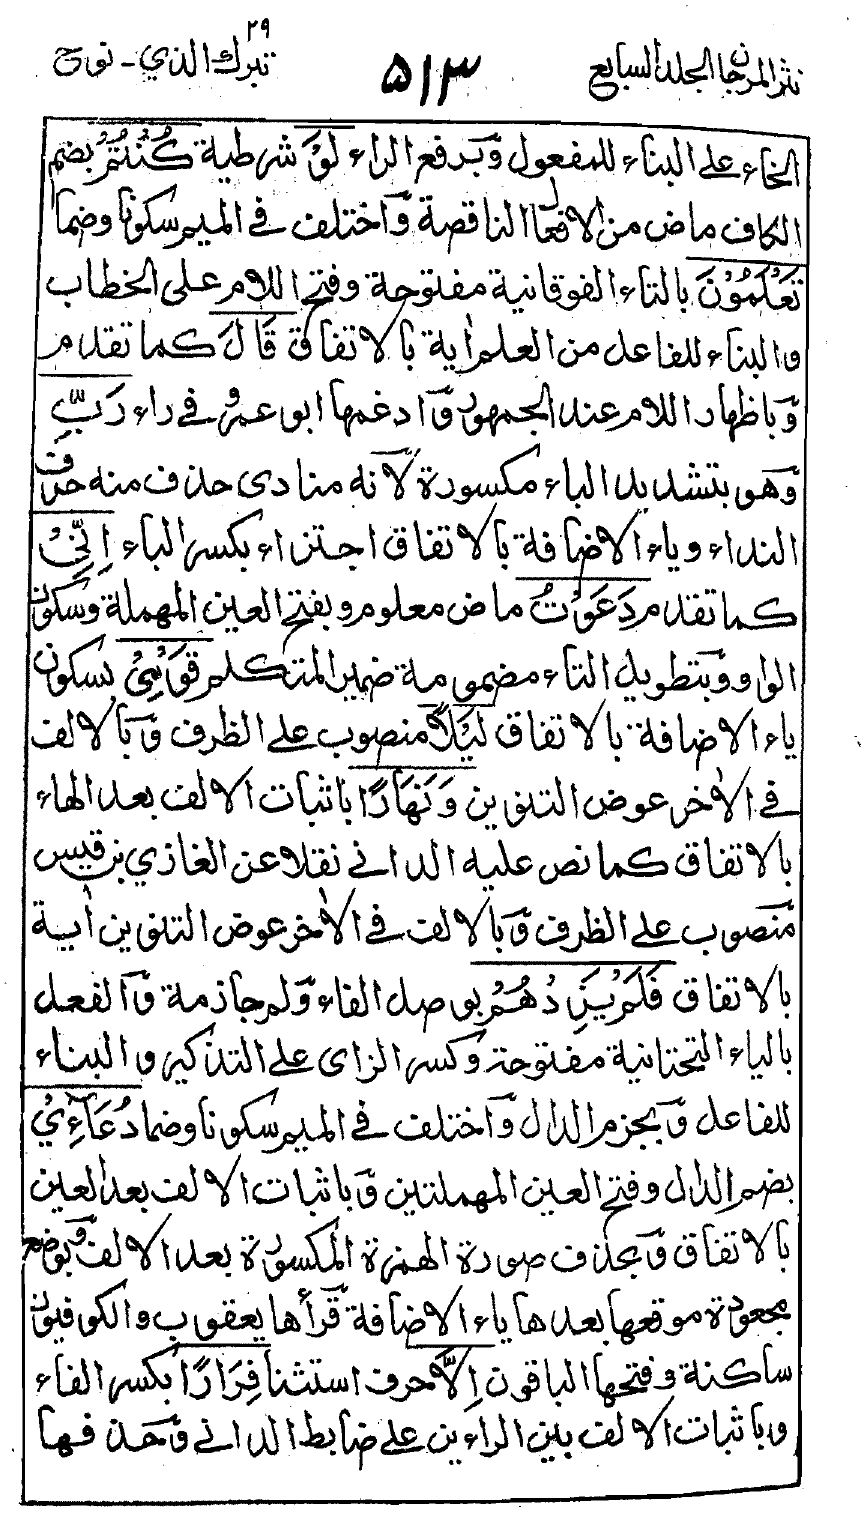 نثر المرجان الجلد السابع ۵۱۳ تبرك الذي - نوح ۲۹
الخاء على البناء للمفعول وَبرفع الراء لَوْ شرطية كُنْتُمْ بضم
الكاف ماض من الافعال الناقصة وَاختلف في الميم سكونا وضما
تَعْلَمُوْنَ بالتاء الفوقانية مفتوحة وفتح اللام على الخطاب
والبناء للفاعل من العلم اٰية بالاتفاق قَالَ كما تقدم
وَباظهار اللام عند الجمهور وَادغمها ابو عمرو في راء رَبِّ
وَهو بتشديد الباء مكسورة لَانه منادى حذف منه حرف
النداء وياء الاضافة بالاتفاق اجتزاء بكسر الباء اِنِّيْ
كما تقدم دَعَوْتُ ماض معلوم وبفتح العين المهملة وسكون
الواو وَبتطويل التاء مضمومة ضمير المتكلم قَوْمِيْ بسكون
ياء الاضافة بالاتفاق لَيْلًا منصوب على الظرف وَبالالف
في الاٰخر عوض التنوين وَنَهَارًا باثبات الالف بعد الهاء
بالاتفاق كما نص عليه الداني نقلا عن الغازي بن قيس
منصوب على الظرف وَبالالف في الاٰخر عوض التنوين اٰية
بالاتفاق فَلَمْ يَزِدْهُمْ بوصل الفاء وَلم جازمة وَالفعل
بالياء التحتانية مفتوحة وكسر الزاى على التذكير والبناء
للفاعل وَبجزم الدال وَاختلف في الميم سكونا وضما دُعَآءِيْ
بضم الدال وفتح العين المهملتين وَباثبات الالف بعد العين
بالاتفاق وَبحذف صورة الهمزة المكسورة بعد الالف وَبوضع
مجعودة موقعها بعدها ياء الاضافة قَرأها يعقوب والكوفيون
ساكنة وفتحها الباقون اِلَّا حرف استثنا فِرَارًا بكسر الفاء
وباثبات الالف بين الراءين على ضابط الداني وَحذفها